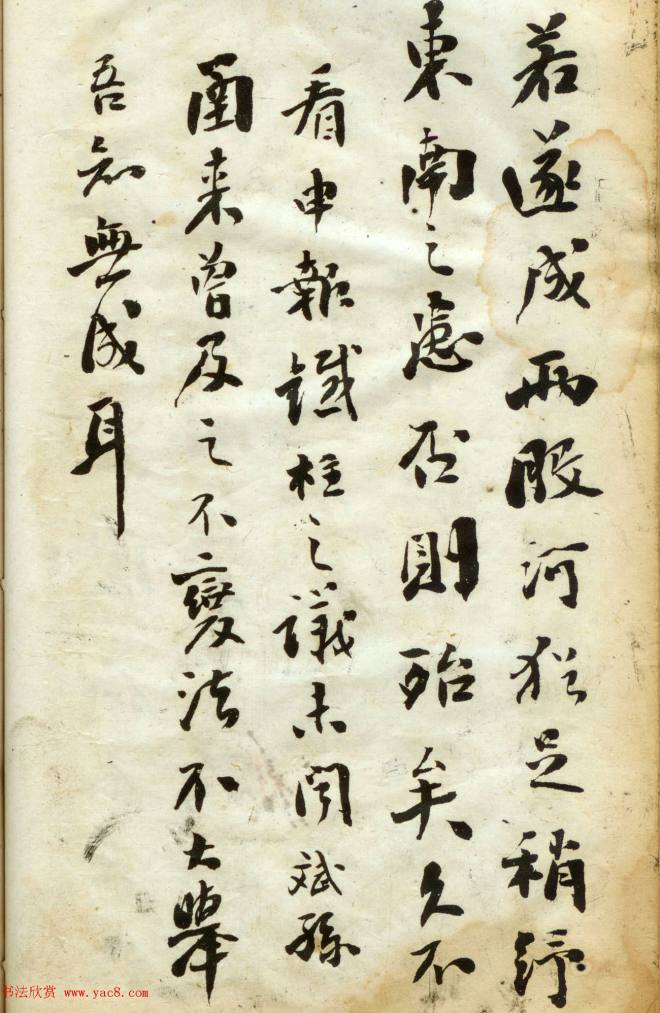 若遂成兩股河猶足稍紓
東南之患否則殆矣久不
看申報鐵柱之議未聞斌孫
函来曾及之不變法不大舉
吾知無成耳
书法欣赏 www.yac8.com